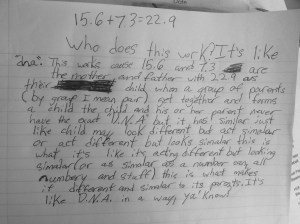 15.6+7.3=22.9
Who does this work? It's like
"dna". This works cose 15.6 and 7.3 are
the mother and father with 22.9 as
thier child when a group of parents
(by group I mean pair) get together and forms
a child the child and his or her parent never
have the exact D.N.A but it has similar just
like child may look different but act similar
or act different but looks similar this is
what its like its acting different but looking
similar (or as similar as a number can, all
numbery and stuff) this is what makes
it different and similar to its parents. It's
like D.N.A. in a way, ya' know?